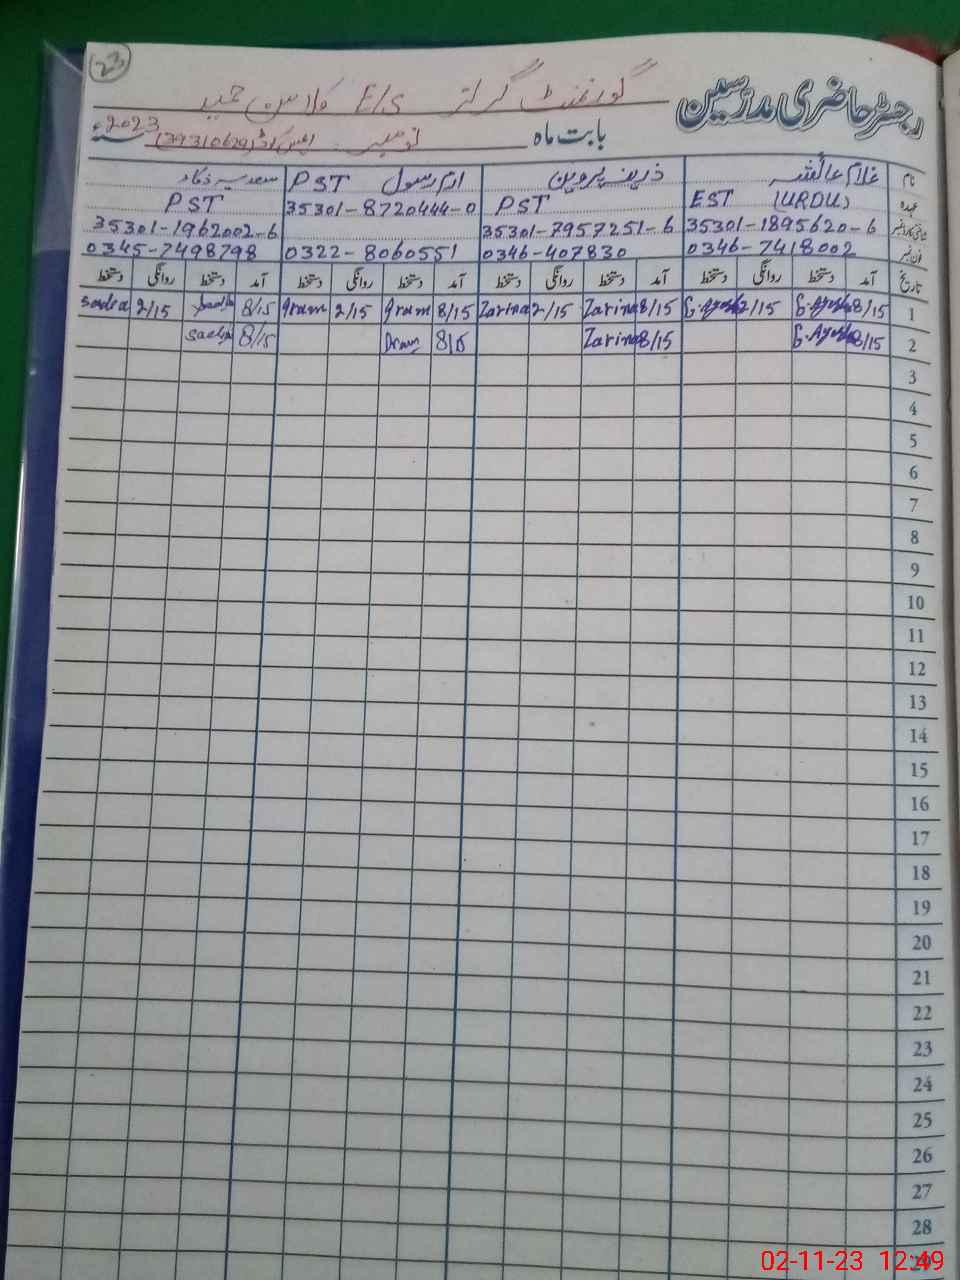 23
رجسٹر حاضری مدرسین
گورنمنٹ گرلز E/S
بابت ماہ نومبر 2023ء
نام غلام عائشہ زرینہ پروین ارم رسول PST سعدیہ
عہدہ EST (URDU) PST PST
35301-1895620-6 35301-7957251-6 35301-8720444-0 35301-1962002-6
فون نمبر 0346-7418002 0346-407830 0322-8060551 0345-7498798
تاریخ آمد دستخط روانگی دستخط آمد دستخط روانگی دستخط آمد دستخط روانگی دستخط آمد دستخط روانگی دستخط
1 8/15 G.Ayesha 2/15 G.Ayesha 8/15 Zarina 2/15 Zarina 8/15 Irum 2/15 Irum 8/15 Sadia 2/15 Sadia
2 8/15 G.Ayesha 8/15 Zarina 8/15 Irum 8/15 Sadia
3
4
5
6
7
8
9
10
11
12
13
14
15
16
17
18
19
20
21
22
23
24
25
26
27
28
29
02-11-23 12:49